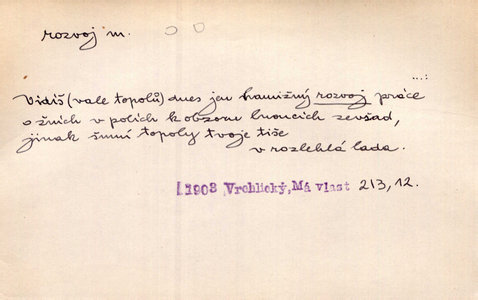 rozvoj m.
Vidíš (vale topolů) dnes jen hamižný rozvoj práce
o žních v polích k obzoru lnoucích zevšad,
jinak šumí topoly tvoje tiše
v rozlehlá lada.
[1903 Vrchlický, Má vlast 213, 12.